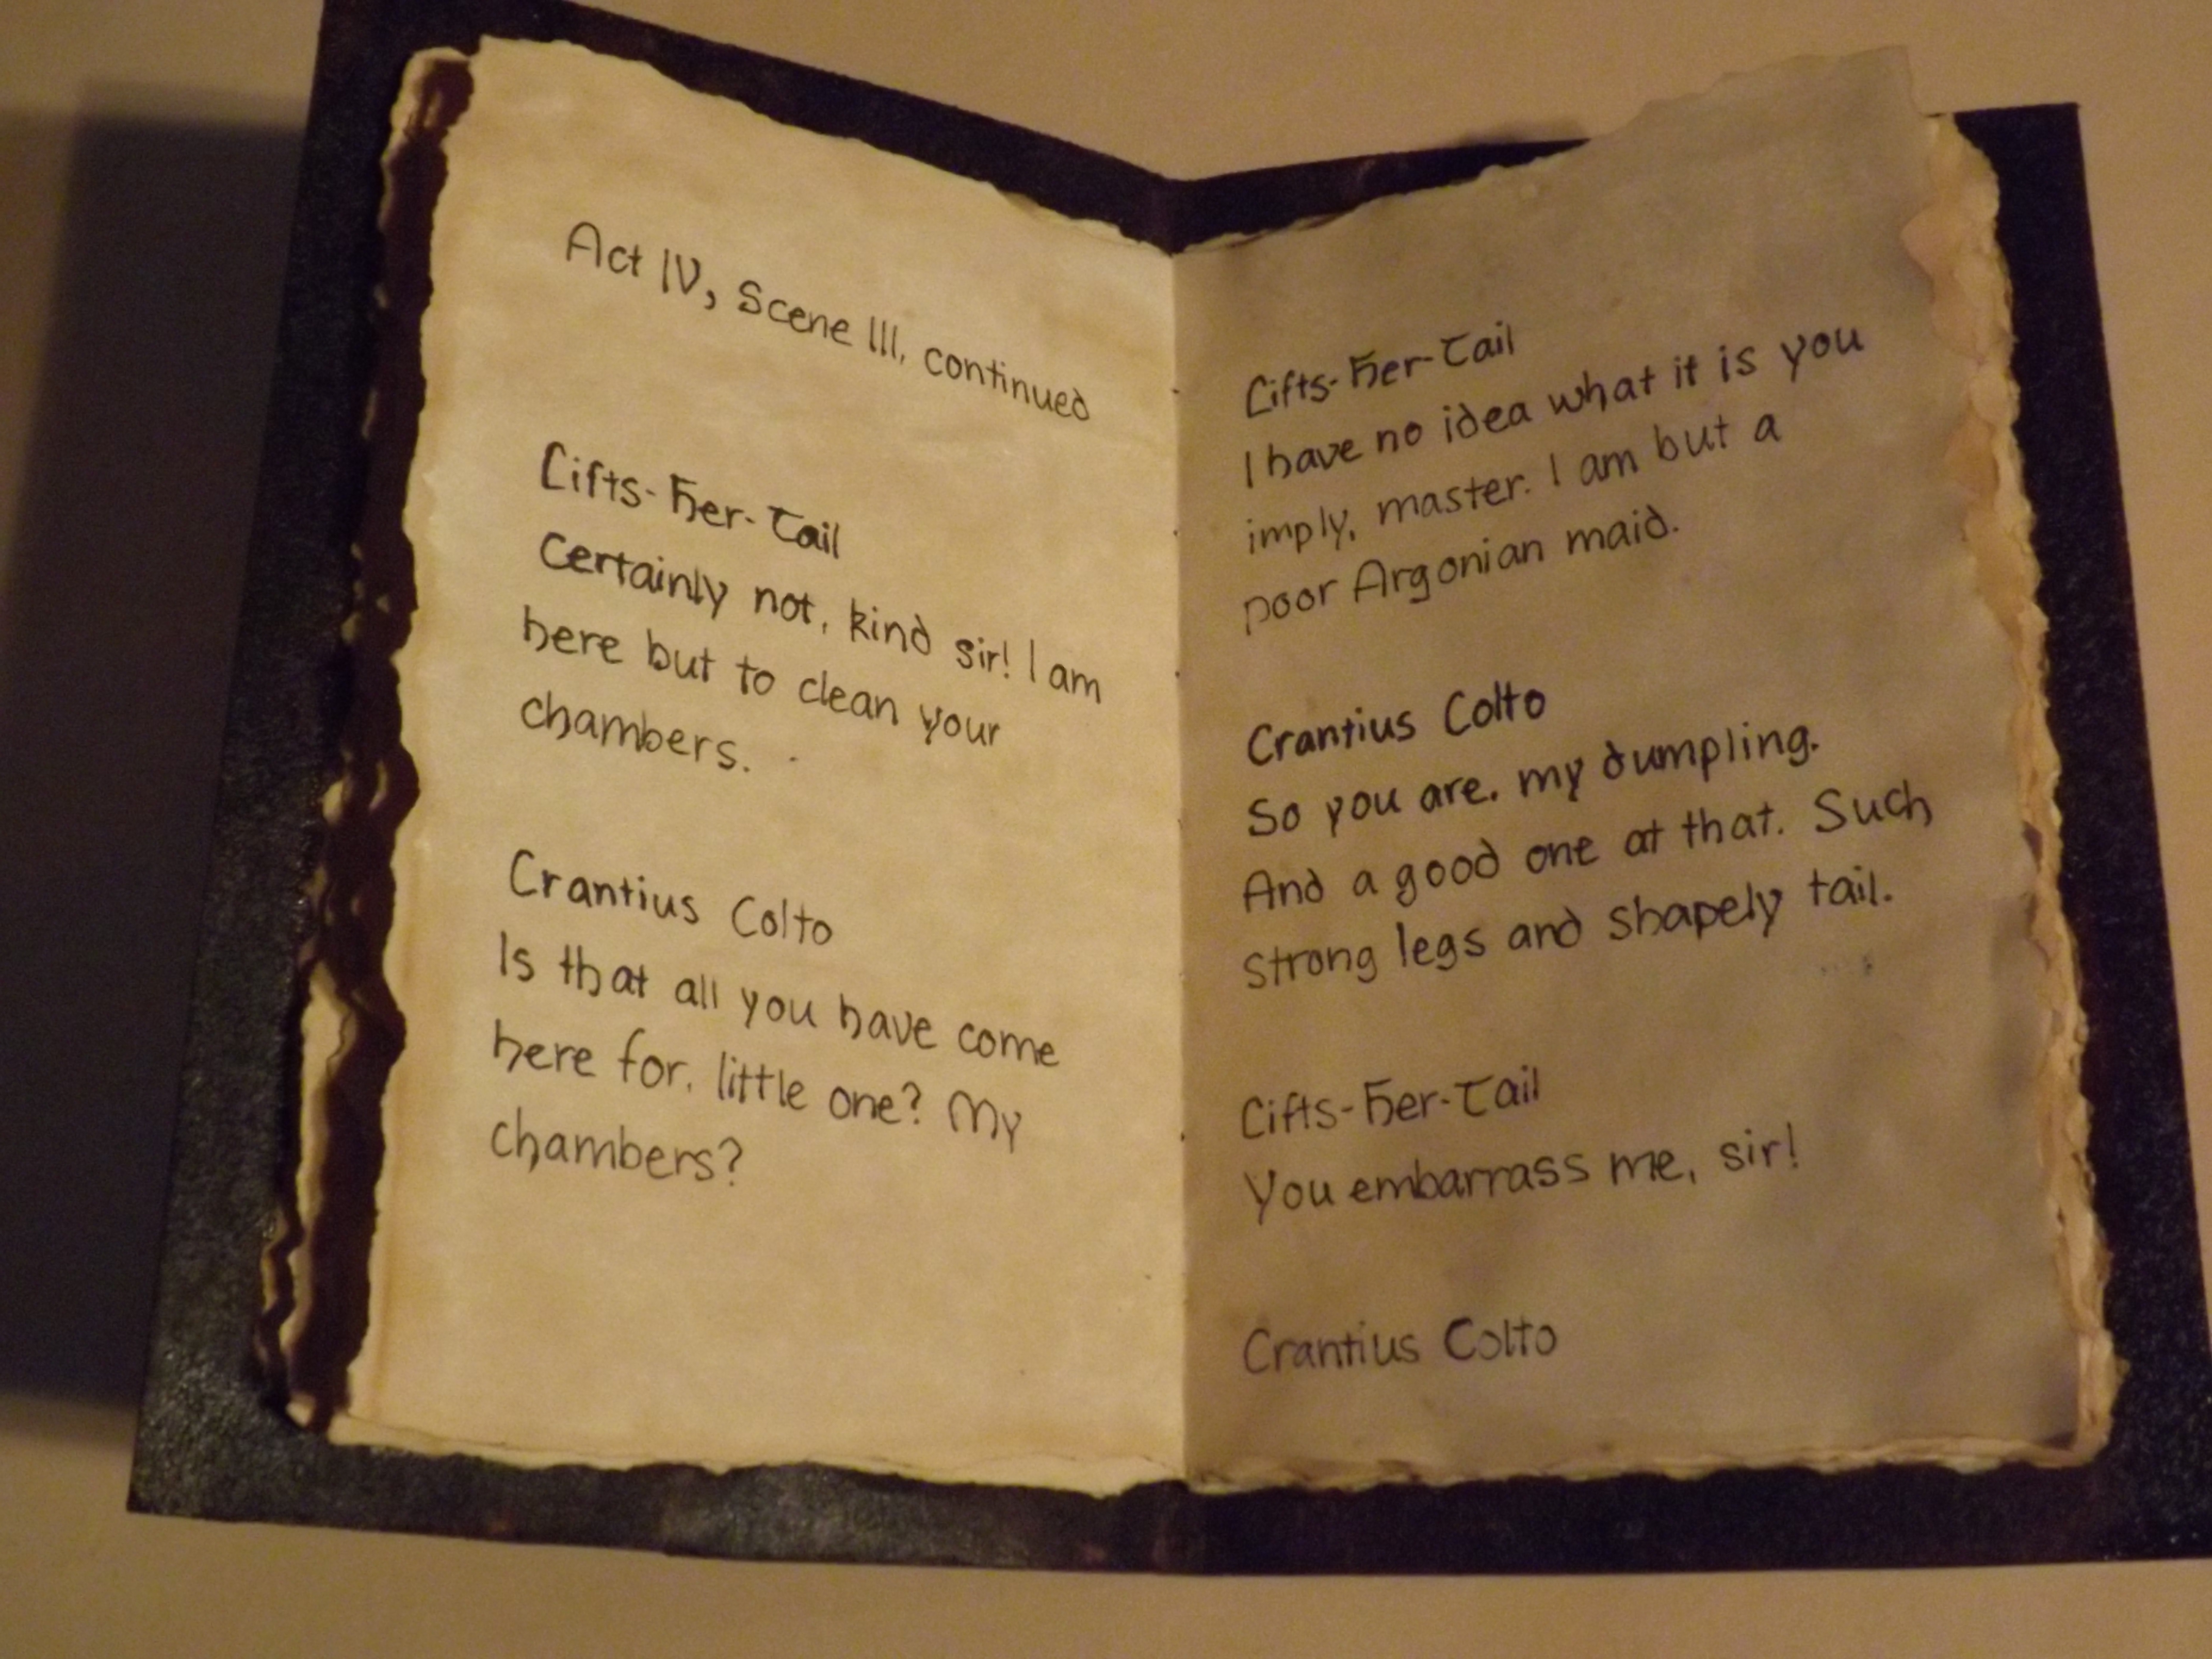 Act IV, Scene III, continued
Lifts-Her-Tail
Certainly not, kind sir! I am
here but to clean your
chambers.
Crantius Colto
Is that all you have come
here for, little one? My
chambers?
Lifts-Her-Tail
I have no idea what it is you
imply, master. I am but a
poor Argonian maid.
Crantius Colto
So you are, my dumpling.
And a good one at that. Such
strong legs and shapely tail.
Lifts-Her-Tail
You embarrass me, sir!
Crantius Colto